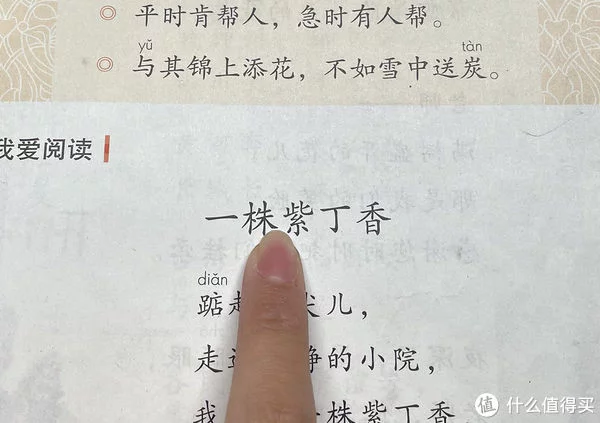 平时肯帮人，急时有人帮。
yǔ tàn
与其锦上添花，不如雪中送炭。
我爱阅读
一株紫丁香
diǎn
踮起 尖儿，
走 静的小院，
我 株紫丁香
值 什么值得买